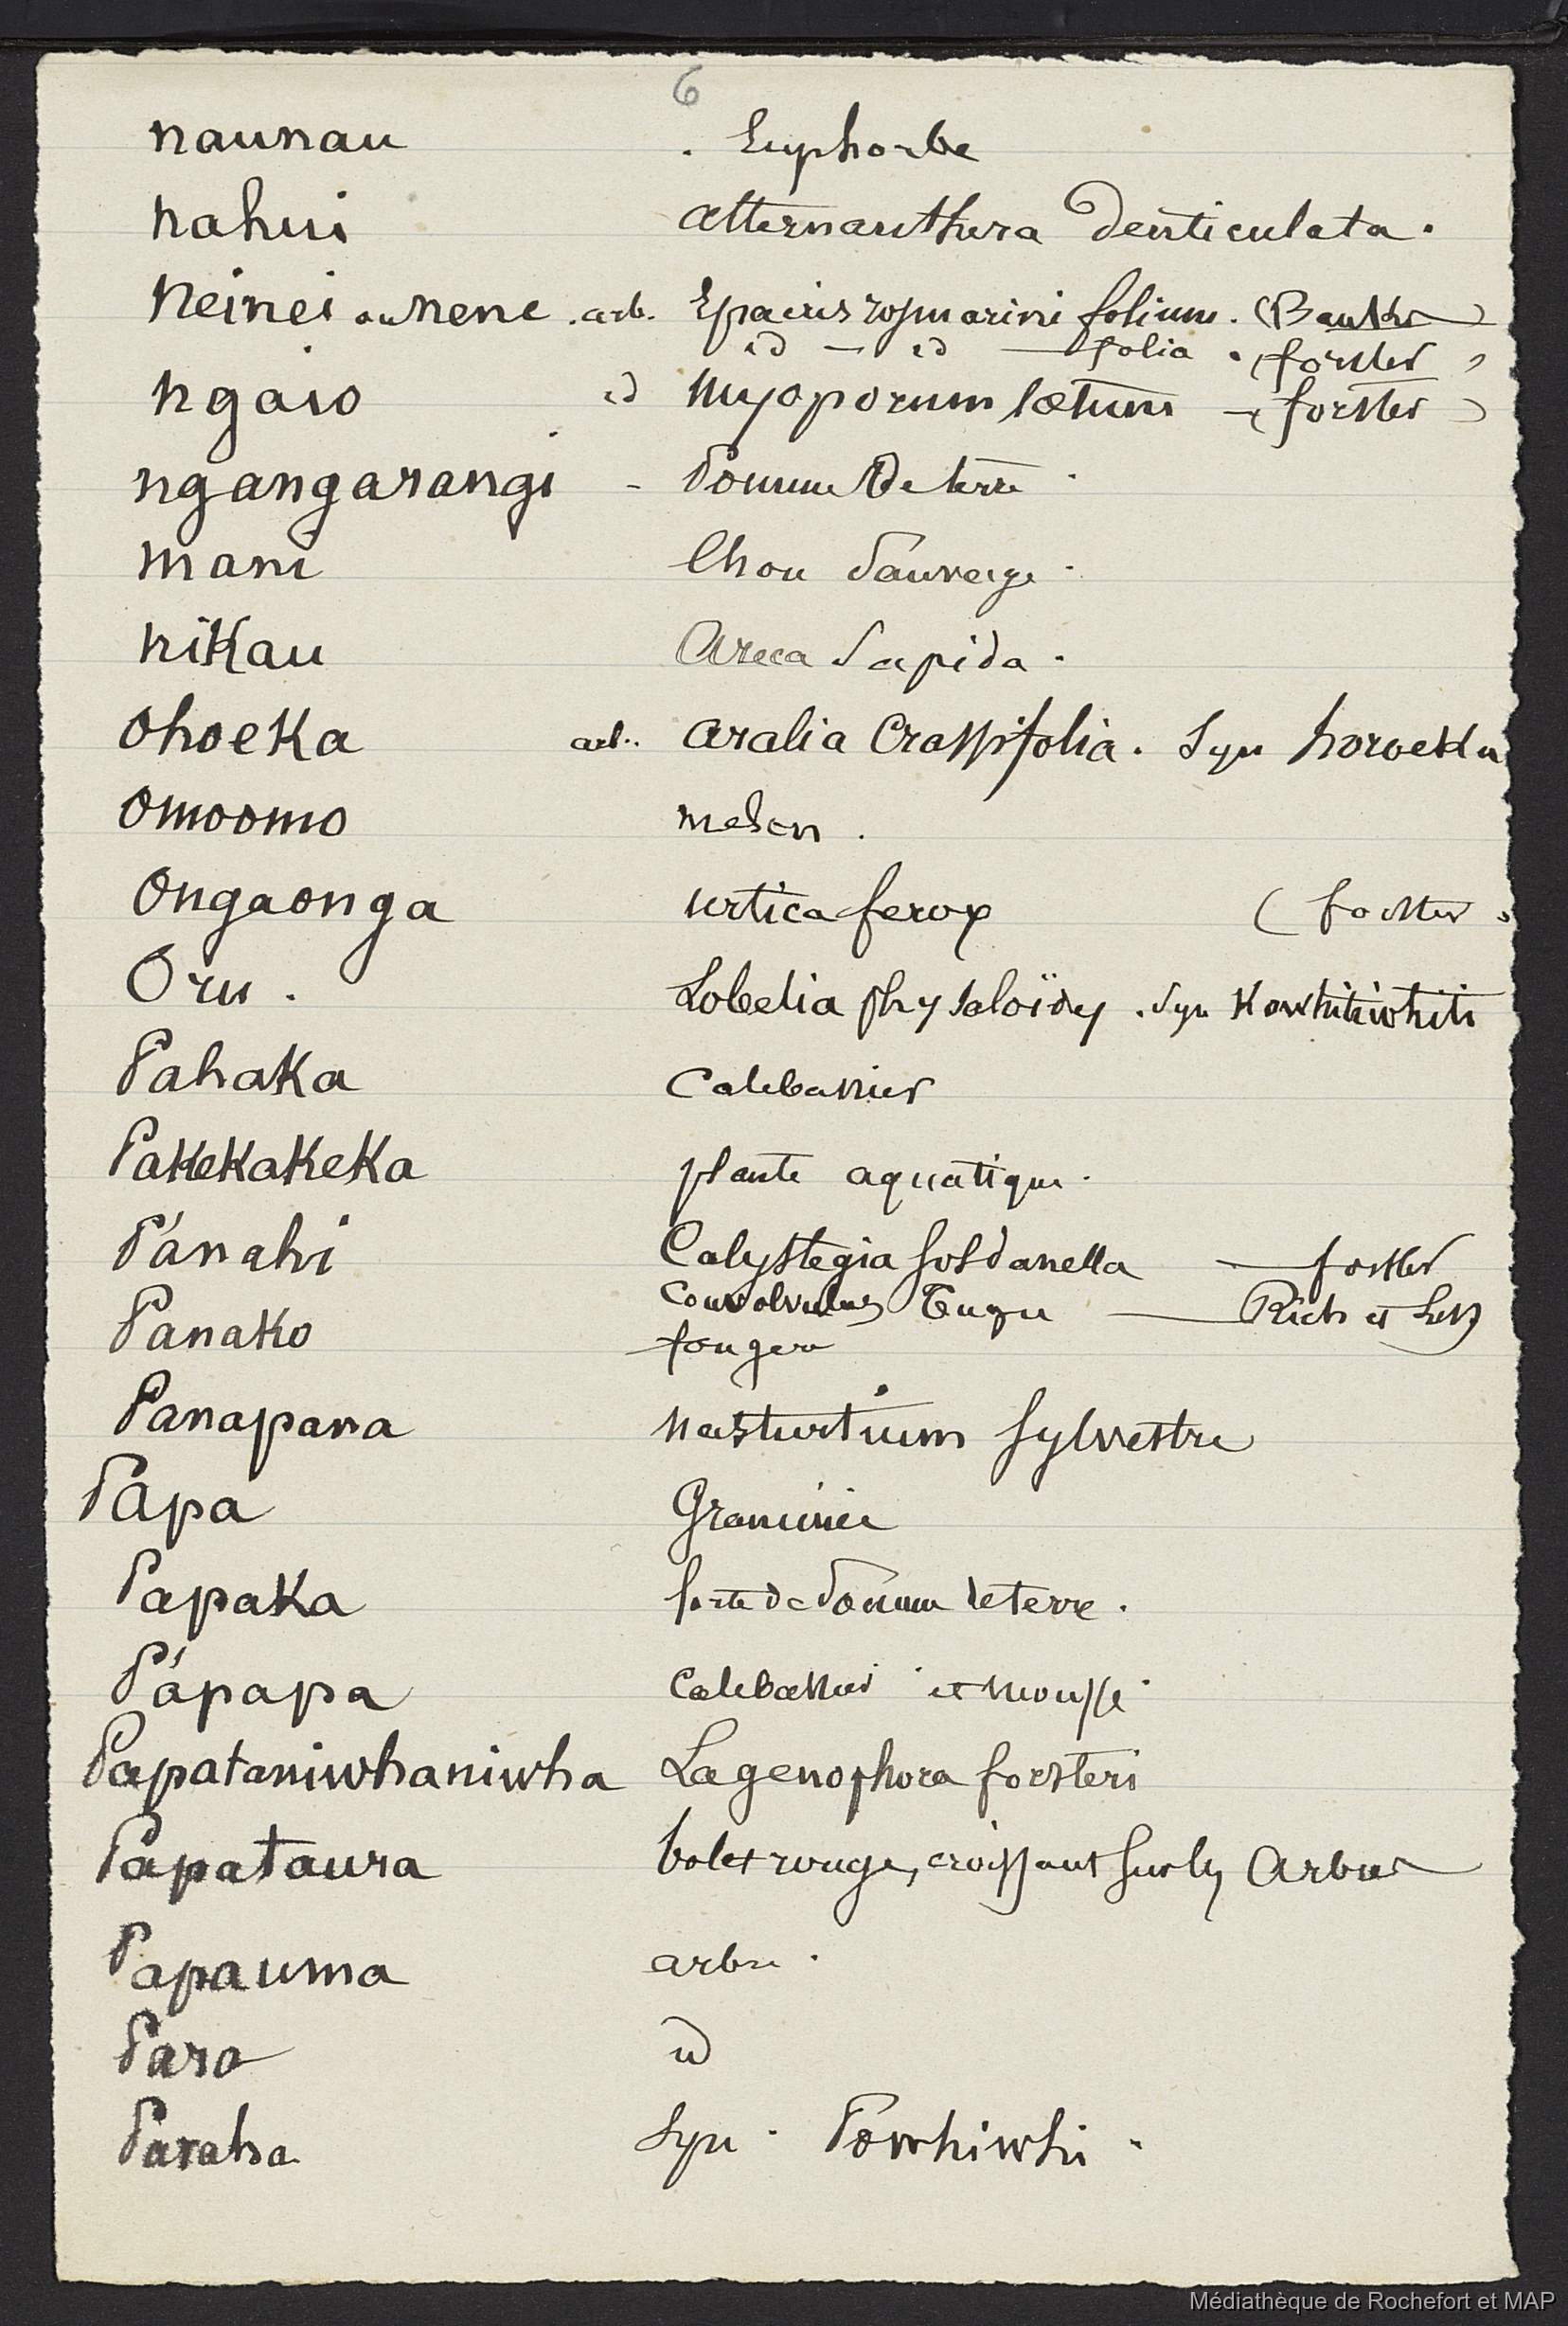 6
naunau . Euphorbe
nahui alternanthera denticulata .
Neinei ou nene . arb. Epacris rosmarini folium . (Banks)
id — id — folia . (forster)
ngaio id Myoporum lætum — (forster)
ngangarangi - Pomme De terre .
mani Chou Sauvage .
niKau Areca Sapida .
OhoeKa arb. aralia Crassifolia . Syn horoeKa
Omoomo melon .
Ongaonga urtica ferox (forster .
Oru . Lobelia physaloïdes . Syn Kowhitiwhiti
PahaKa Calebassier
PaKeKaKeKa plante aquatique .
Pánahi Calystegia Soldanella — forster
Convolvulus Tugu — Rich et Less
PanaKo fougere
Panapana nasturtium Sylvestre
Papa Graminée
PapaKa Sorte de Pomme de terre .
Pápapa Calebassier et mousse .
Papataniwhaniwha Lagenophora forsteri
Papataura bolet rouge, croissant Sur les Arbres
Papauma arbre .
Para id
Paraha Syn . Powhiwhi .
Médiathèque de Rochefort et MAP